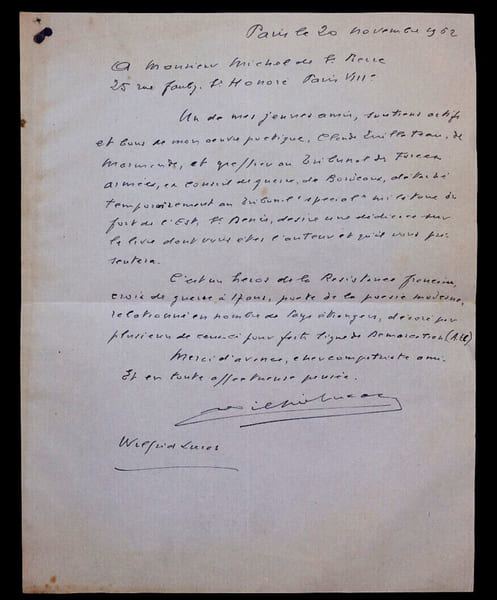 Paris le 20 novembre 1962
A Monsieur Michel de St Pierre
25 rue Faubg. St Honoré Paris VIIIe
Un de mes jeunes amis, soutiens actifs
et bons de mon oeuvre poétique, Claude de
Marmande, et greffier au Tribunal des Forces
armées, ex conseil de guerre, de Bordeaux, détaché
temporairement au tribunal spécial militaire du
fort de l'Est, St Denis, désire une dédicace sur
le livre dont vous êtes l'auteur et qu'il vous pré-
sentera.
C'est un héros de la Résistance française,
croix de guerre à 17 ans, poète de la poésie moderne,
relationné en nombre de Pays étrangers, décoré par
plusieurs de ceux-ci pour forts Ligne de Démarcation
Merci d'avance, cher compatriote ami.
Et en toute affectueuse pensée.
Wilfrid Lucas
Wilfrid Lucas